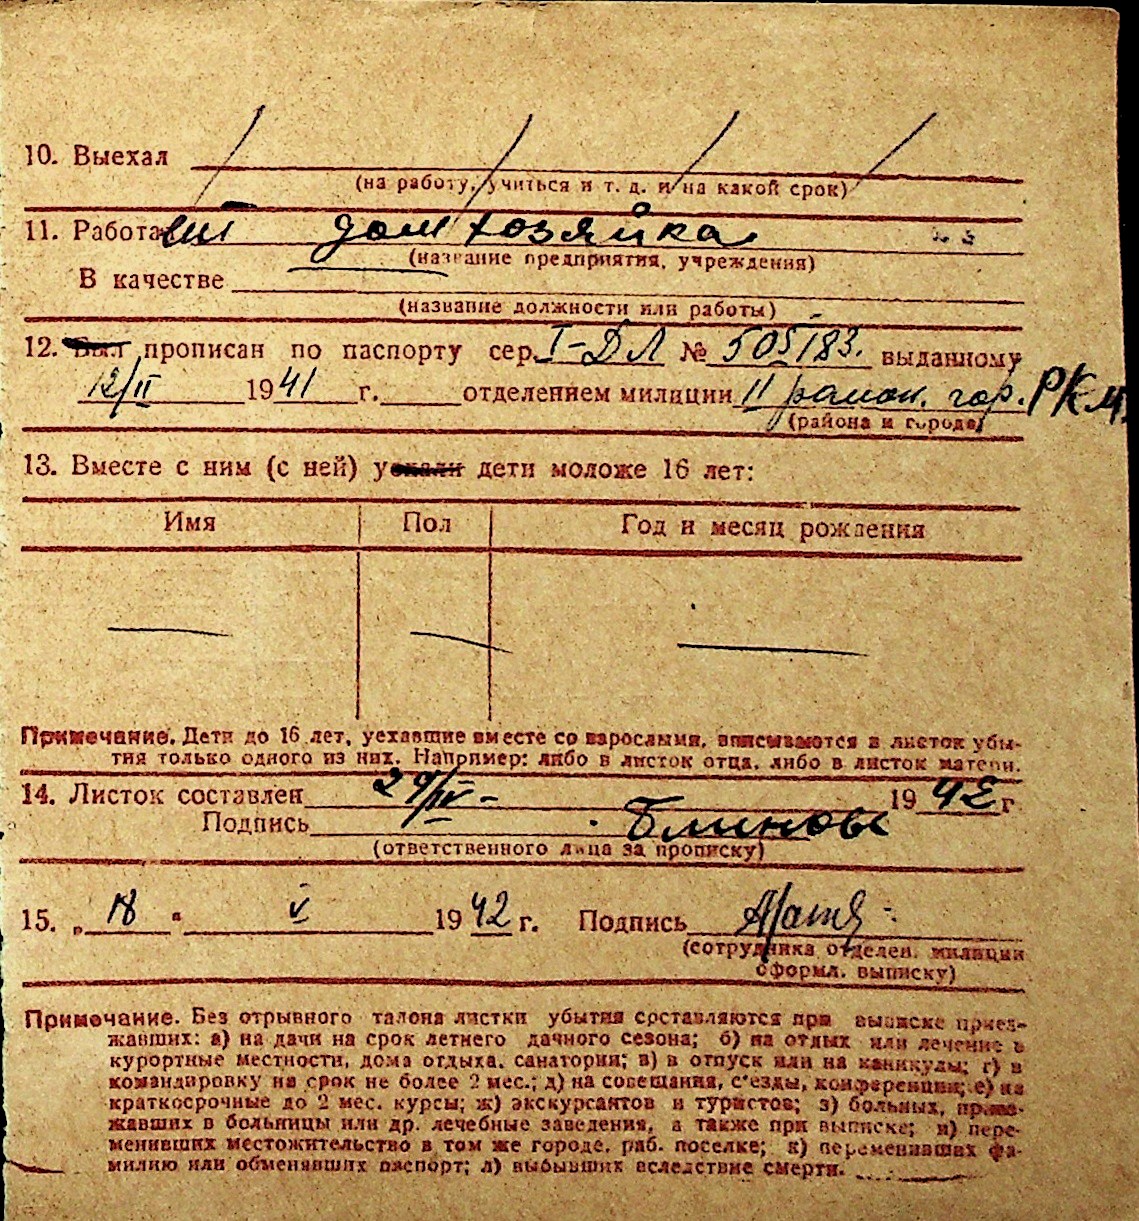 10. Выехал
(на работу, учиться и т. д. и на какой срок)
11. Работал домхозяйка
(название предприятия, учреждения)
В качестве
(название должности или работы)
12. Был прописан по паспорту сер. I-ДЛ № 505183. выданному
12/II 1941 г. отделением милиции 11 район. гор. РКМ
(района и города)
13. Вместе с ним (с ней) уехали дети моложе 16 лет:
Имя Пол Год и месяц рождения
Примечание. Дети до 16 лет, уехавшие вместе со взрослыми, вписываются в листок убы-
тия только одного из них. Например: либо в листок отца, либо в листок матери.
14. Листок составлен 29/IV- 1942 г
Подпись Блинова
(ответственного лица за прописку)
15. „18“ V 1942 г. Подпись
(сотрудника отделен. милиции
оформл. выписку)
Примечание. Без отрывного талона листки убытия срставляются при выписке приез-
жавших: а) на дачи на срок летнего дачного сезона; б) на отдых или лечение в
курортные местности, дома отдыха, санатории; в) в отпуск или на каникулы; г) в
командировку на срок не более 2 мес.; д) на совещания, с'езды, конференции; е) на
краткосрочные до 2 мес. курсы; ж) экскурсантов и туристов; з) больных, приез-
жавших в больницы или др. лечебные заведения, а также при выписке; и) пере-
менивших местожительство в том же городе, раб. поселке; к) переменивших фа-
милию или обменявших паспорт; л) выбывших вследствие смерти.